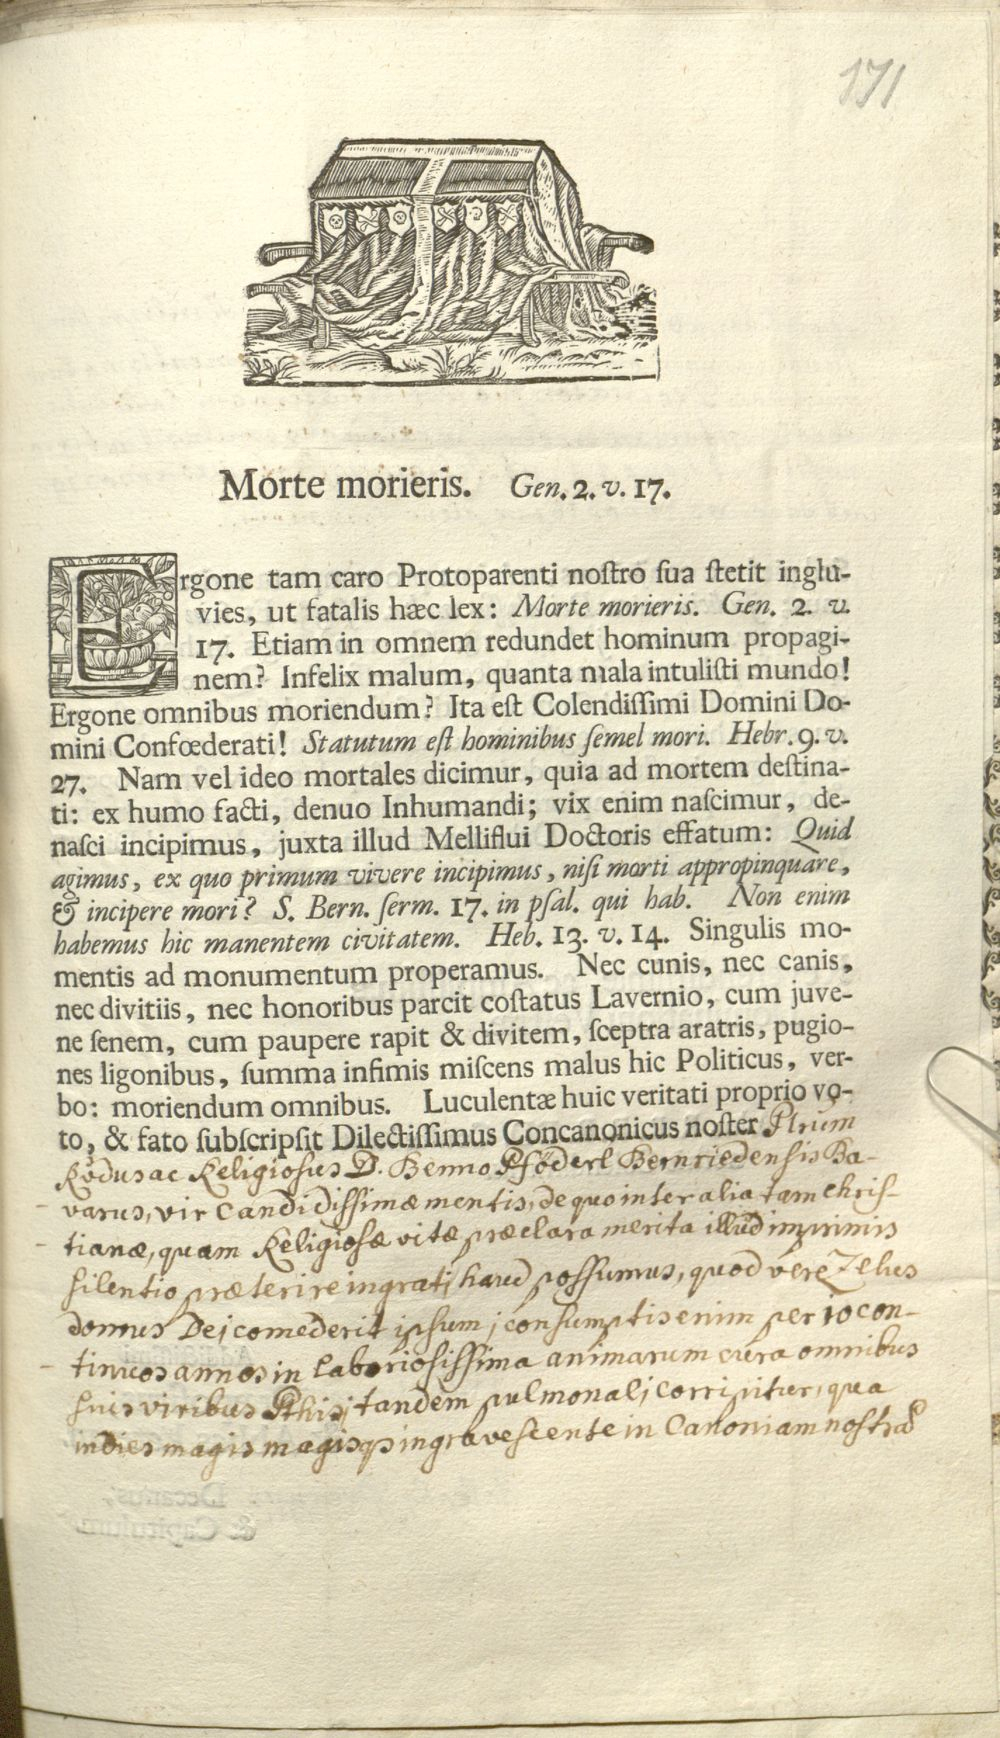 171
Morte morieris. Gen. 2. v. 17.
Ergone tam caro Protoparenti nostro sua stetit inglu-
vies, ut fatalis hæc lex: Morte morieris. Gen. 2. v.
17. Etiam in omnem redundet hominum propagi-
nem? Infelix malum, quanta mala intulisti mundo!
Ergone omnibus moriendum? Ita est Colendissimi Domini Do-
mini Confœderati! Statutum est hominibus semel mori. Hebr. 9. v.
27. Nam vel ideo mortales dicimur, quia ad mortem destina-
ti: ex humo facti, denuo Inhumandi; vix enim nascimur, de-
nasci incipimus, juxta illud Melliflui Doctoris effatum: Quid
agimus, ex quo primum vivere incipimus, nisi morti appropinquare,
& incipere mori? S. Bern. serm. 17. in psal. qui hab. Non enim
habemus hic manentem civitatem. Heb. 13. v. 14. Singulis mo-
mentis ad monumentum properamus. Nec cunis, nec canis,
nec divitiis, nec honoribus parcit costatus Lavernio, cum juve-
ne senem, cum paupere rapit & divitem, sceptra aratris, pugio-
nes ligonibus, summa infimis miscens malus hic Politicus, ver-
bo: moriendum omnibus. Luculentæ huic veritati proprio vo-
to, & fato subscripsit Dilectissimus Concanonicus noster Plrum
Rvdus ac Religiosus D. Benno Pföderl Bernriedensis Ba-
varus, vir Candidissimæ mentis, de quo inter alia tam Chris-
tianæ, quam Religiosæ vitæ præclara merita illud imprimis
silentio præterire ingrati haud possumus, quod vere Zelus
domus Dei comederit ipsum; consumptis enim per 10 con-
tinuos annos in laboriosissima animarum cura omnibus
suis viribus Pthisi tandem pulmonali corripitur, qua
indies magis magisqs ingravescente in Canoniam nostrã